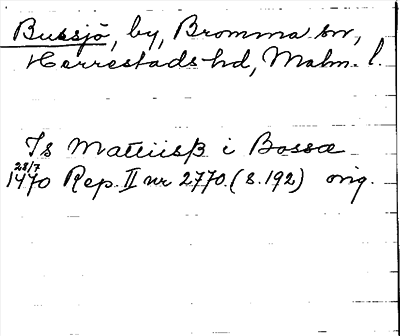 Bussjö, by, Bromma sn,
Herrestads hd, Malm. l.
Is Matiisß i Bossœ
28/7
1470 Rep. II nr 2770. (s. 192) orig.